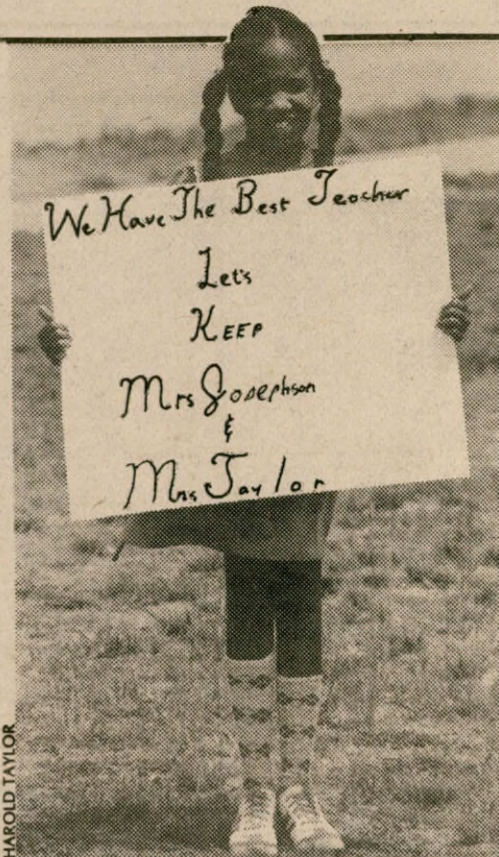 We Have The Best Teacher
Let's
KEEP
Mrs Josephson
&
Mrs Taylor
HAROLD TAYLOR